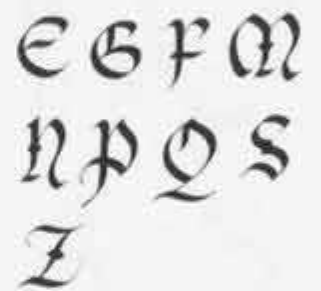 E G F M
N P Q S
Z